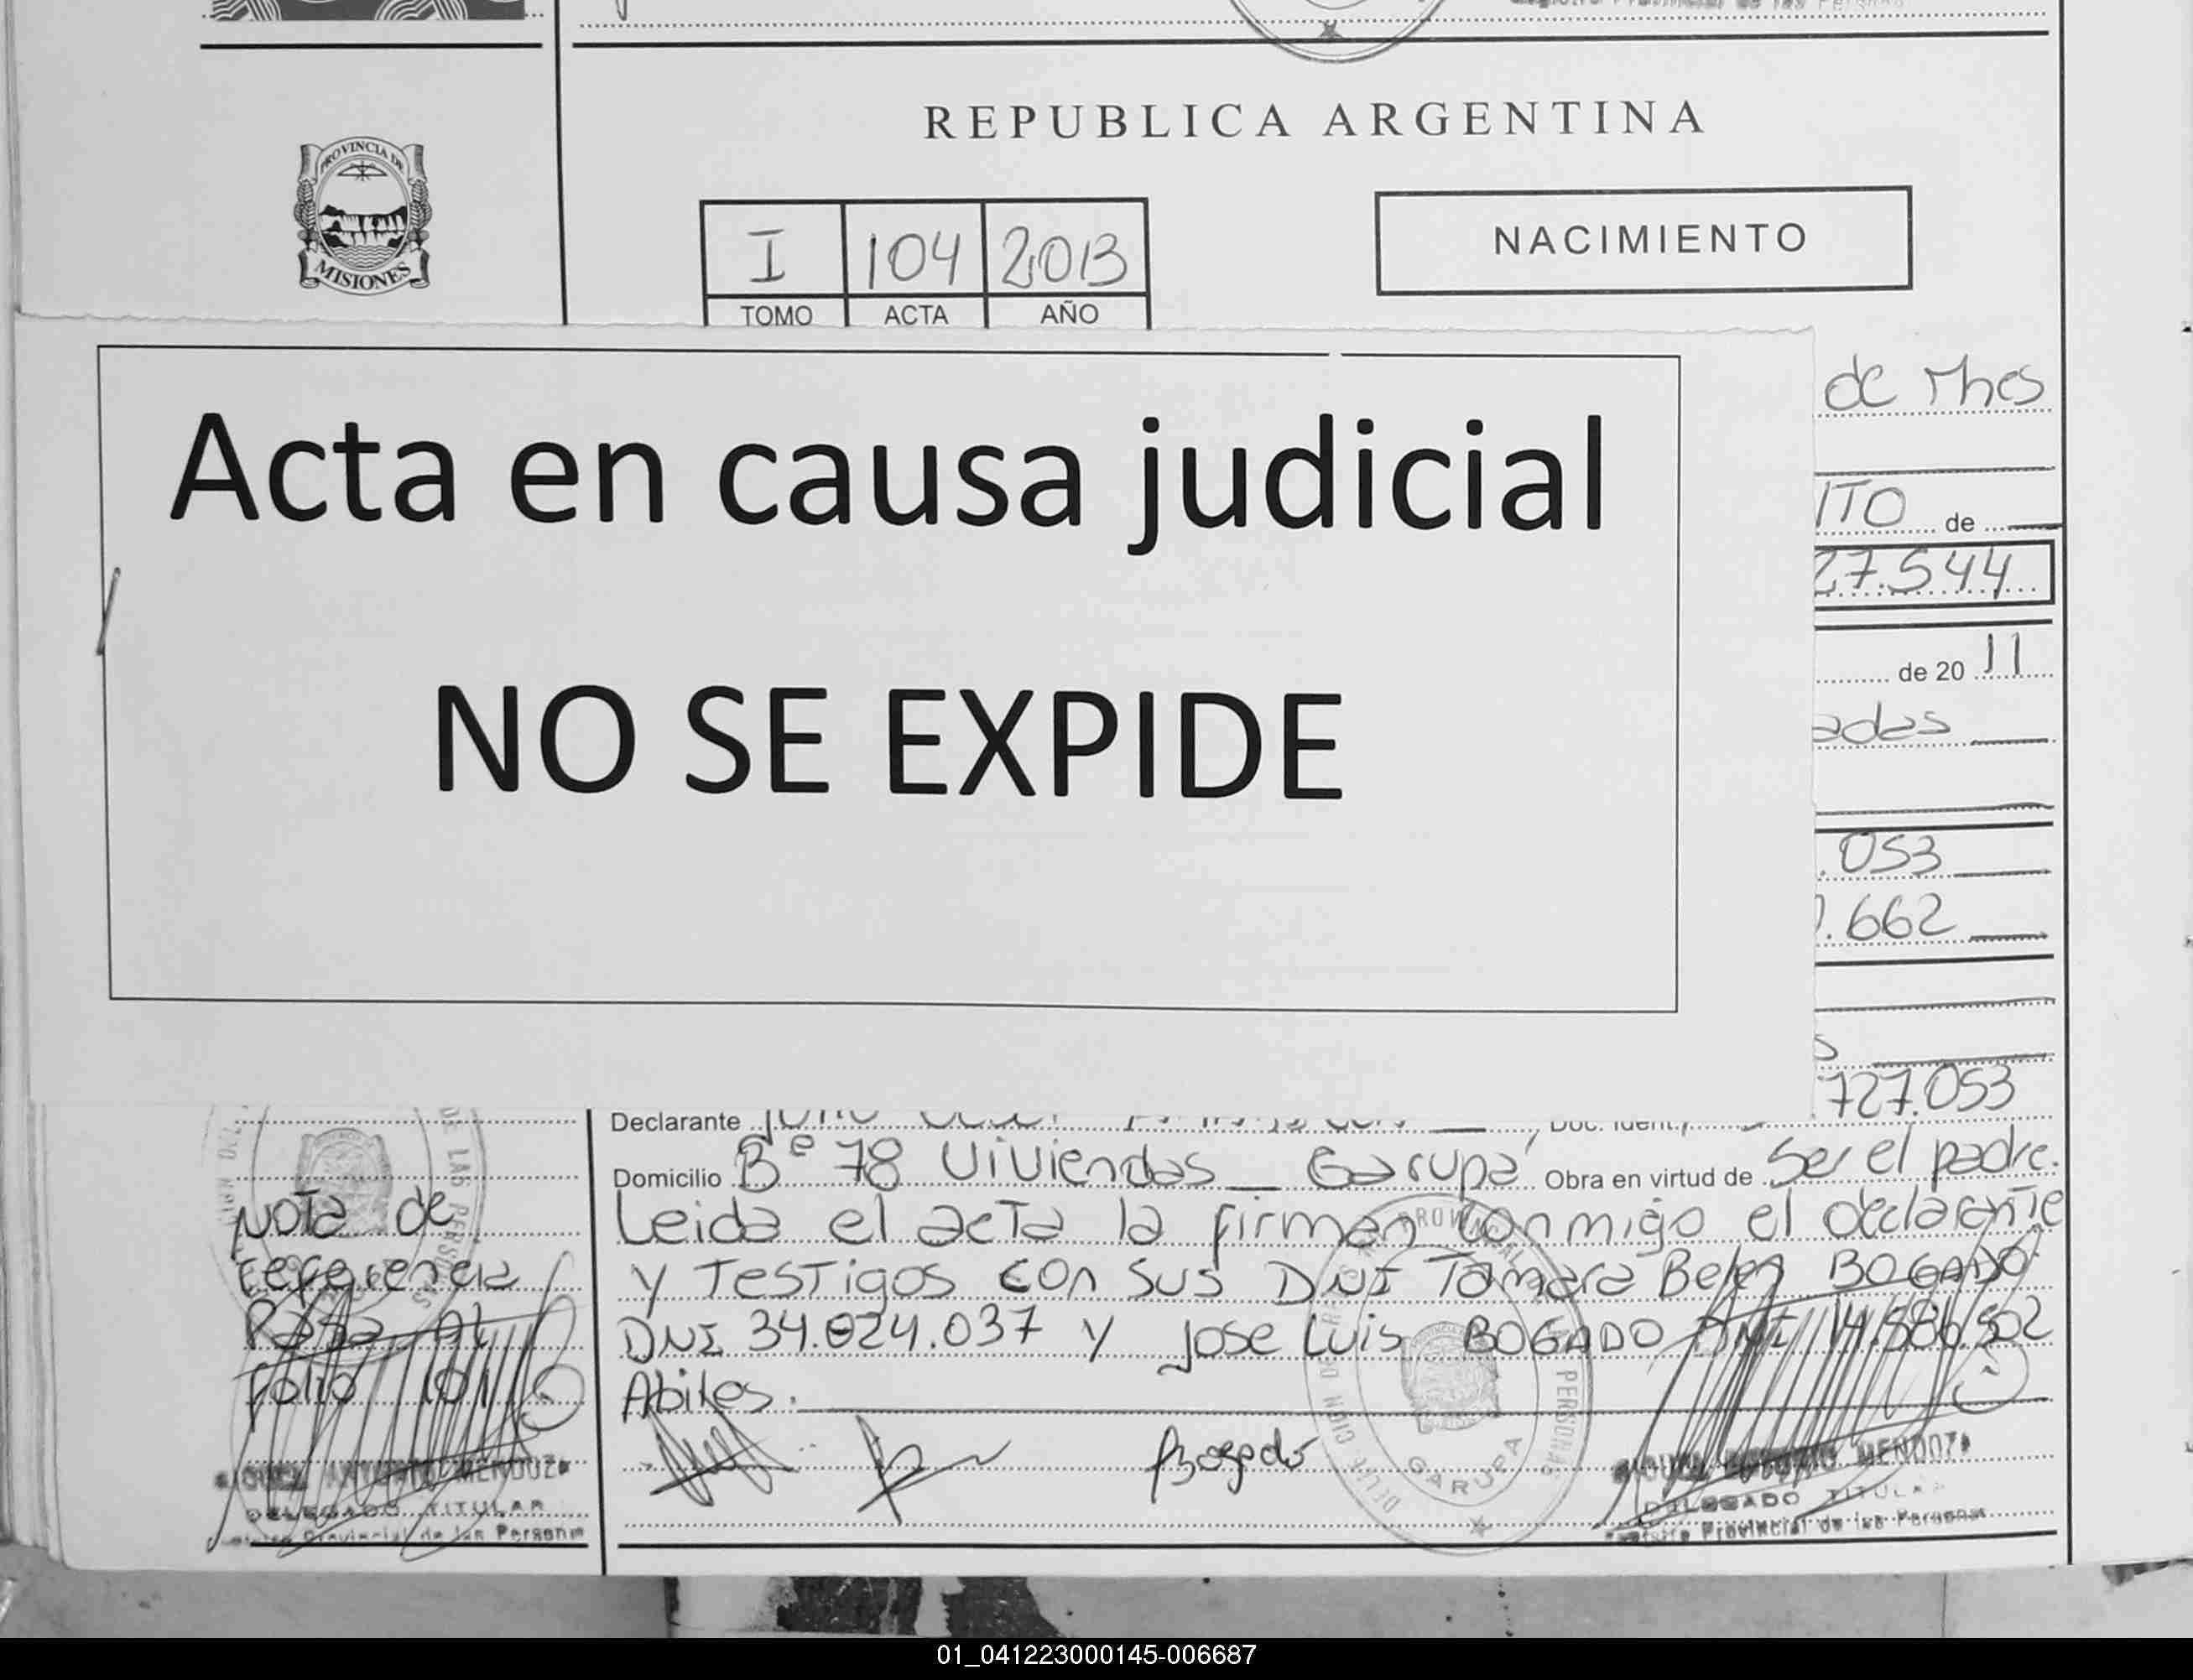 REPUBLICA ARGENTINA
PROVINCIA DE
MISIONES
I 104 2013
TOMO ACTA AÑO
NACIMIENTO
de Mnes
Acta en causa judicial
NO SE EXPIDE
ITO de
27.544
de 20 11
adas
.053
.662
727.053
Declarante
Domicilio Bº 78 Viviendas _ Garupá Obra en virtud de Ser el padre.
Leida el acta la firman conmigo el declarante
y Testigos con sus DNI Tamara Belen BOGADO
DNI 34.024.037 y Jose Luis BOGADO DNI 14.586.502
Abiles.
Nota de
referencia
Pasa al
Folio 101
Bogado
PROVINCIAL
PERSONAS
GARUPA
MENDOZA
DELEGADO TITULAR
Provincial de las Personas
MENDOZA
DELEGADO TITULAR
Provincial de las Personas
01_041223000145-006687